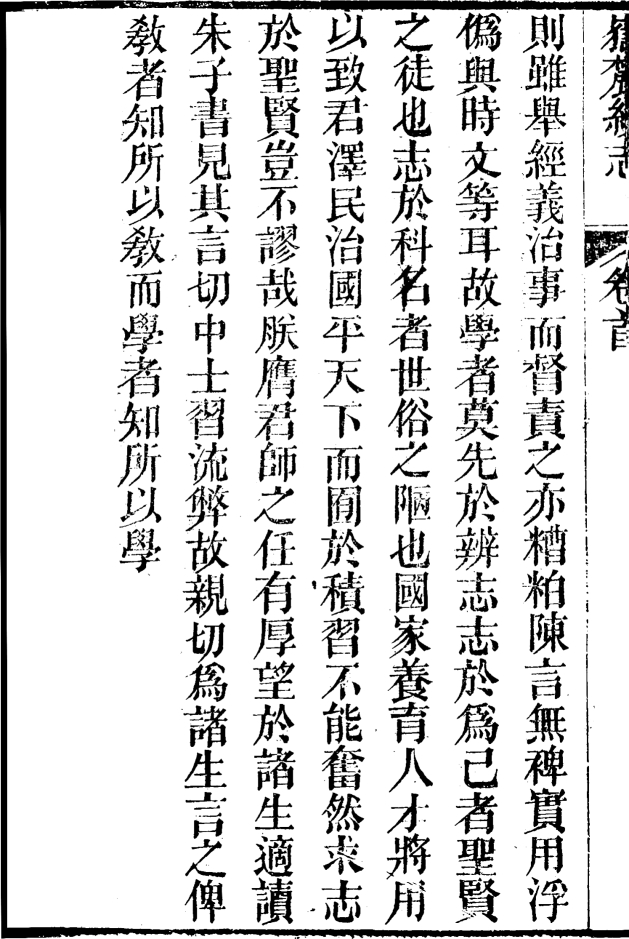 嶽麓續志 卷首
則雖舉經義治事而督責之亦糟粕陳言無裨實用浮
僞與時文等耳故學者莫先於辨志志於爲己者聖賢
之徒也志於科名者世俗之陋也國家養育人才將用
以致君澤民治國平天下而囿於積習不能奮然求志
於聖賢豈不謬哉朕膺君師之任有厚望於諸生適讀
朱子書見其言切中士習流弊故親切爲諸生言之俾
敎者知所以敎而學者知所以學